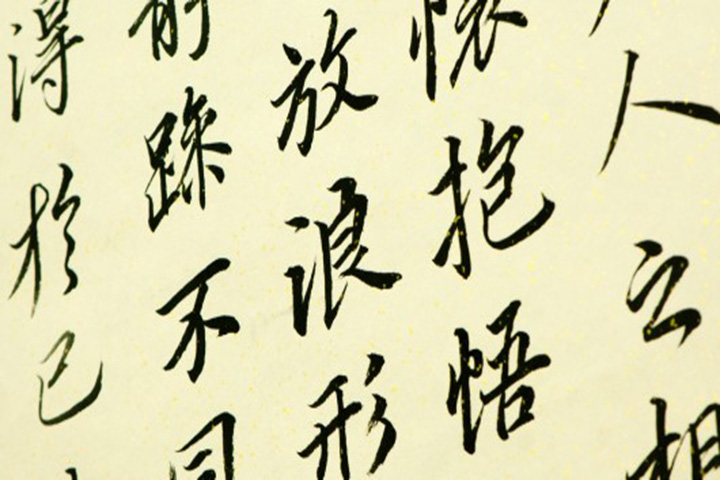 人之相
懷抱悟
放浪形
躁不同
得於己